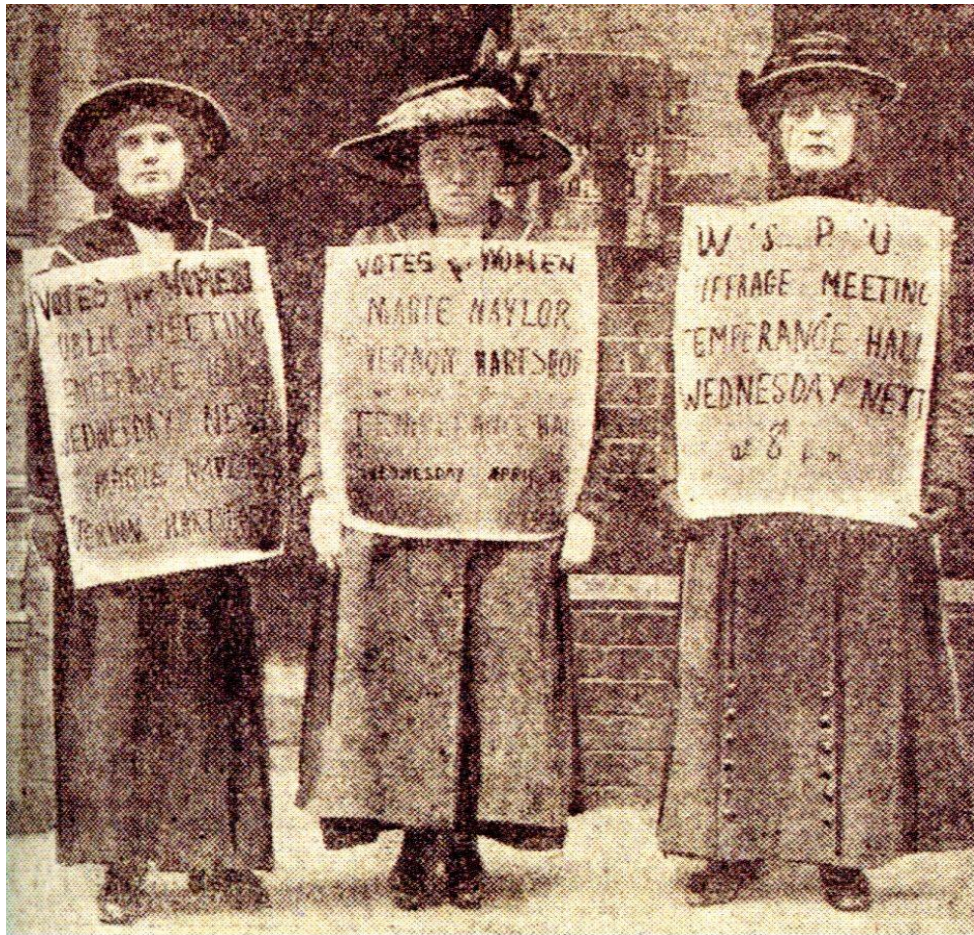 VOTES for WOMEN
UBLIC MEETING
WEDNESDAY NE
MARIE NAYLO
VOTES for WOMEN
MARIE NAYLOR
VERNON HARTSHOR
TEMPERANCE HAL
WEDNESDAY APRIL
W. S. P. U.
UFFRAGE MEETING
TEMPERANCE HALL
WEDNESDAY NEXT
at 8 p.m